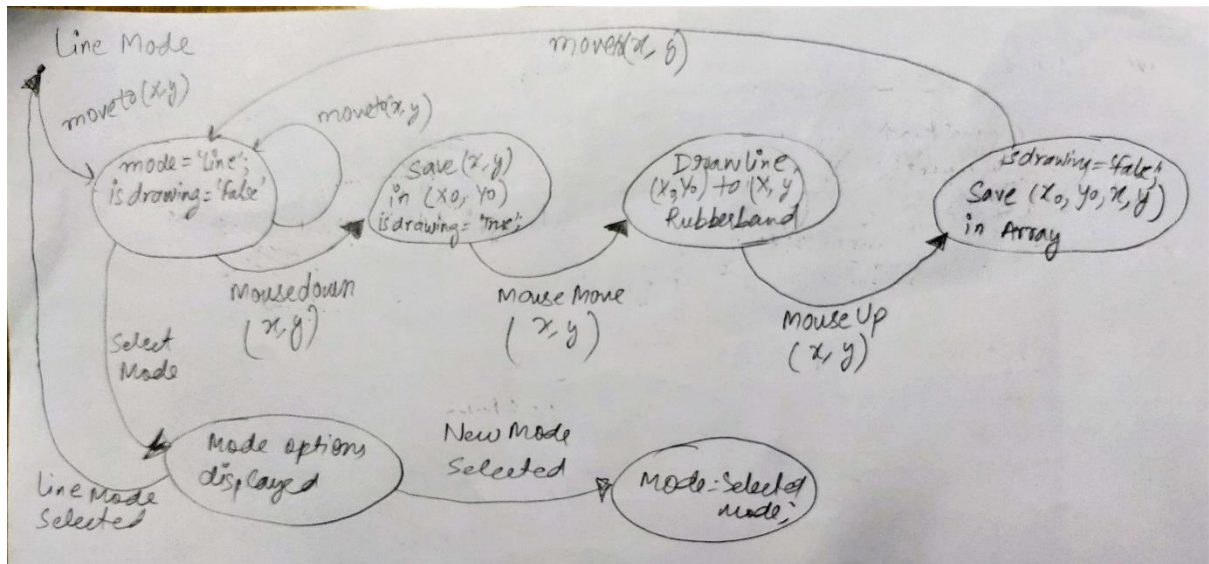 Line Mode
moveto(x, y)
moveto(x,y)
moveto(x,y)
mode = 'Line';
isdrawing='False'
Save (x, y)
in (x0, y0)
isdrawing = 'True';
Drawline
(x0,y0) to (x, y
Rubberband
isdrawing='False';
Save (x0, y0, x, y)
in Array
Mousedown
(x,y)
Mouse Move
(x, y)
Mouse Up
(x, y)
Select
Mode
Mode options
displayed
New Mode
Selected
Mode=Selected
mode;
Line Mode
Selected